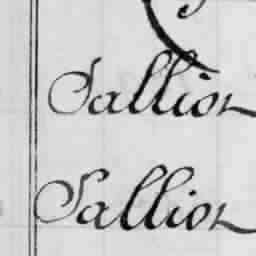 Sallior
Sallior